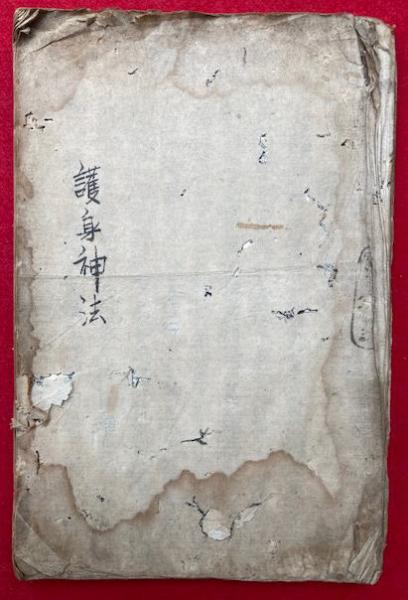 護身神法